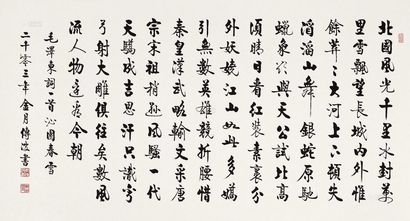 北國風光千里冰封萬
里雪飄望長城内外惟
餘莽莽大河上下頓失
滔滔山舞銀蛇原馳
蠟象欲與天公試比高
須晴日看紅裝素裹分
外妖嬈江山如此多嬌
引無數英雄競折腰惜
秦皇漢武略輸文采唐
宗宋祖稍遜風騷一代
天驕成吉思汗只識彎
弓射大雕俱往矣數風
流人物還看今朝
毛澤東詞一首沁園春雪
二千零三年金月傅書